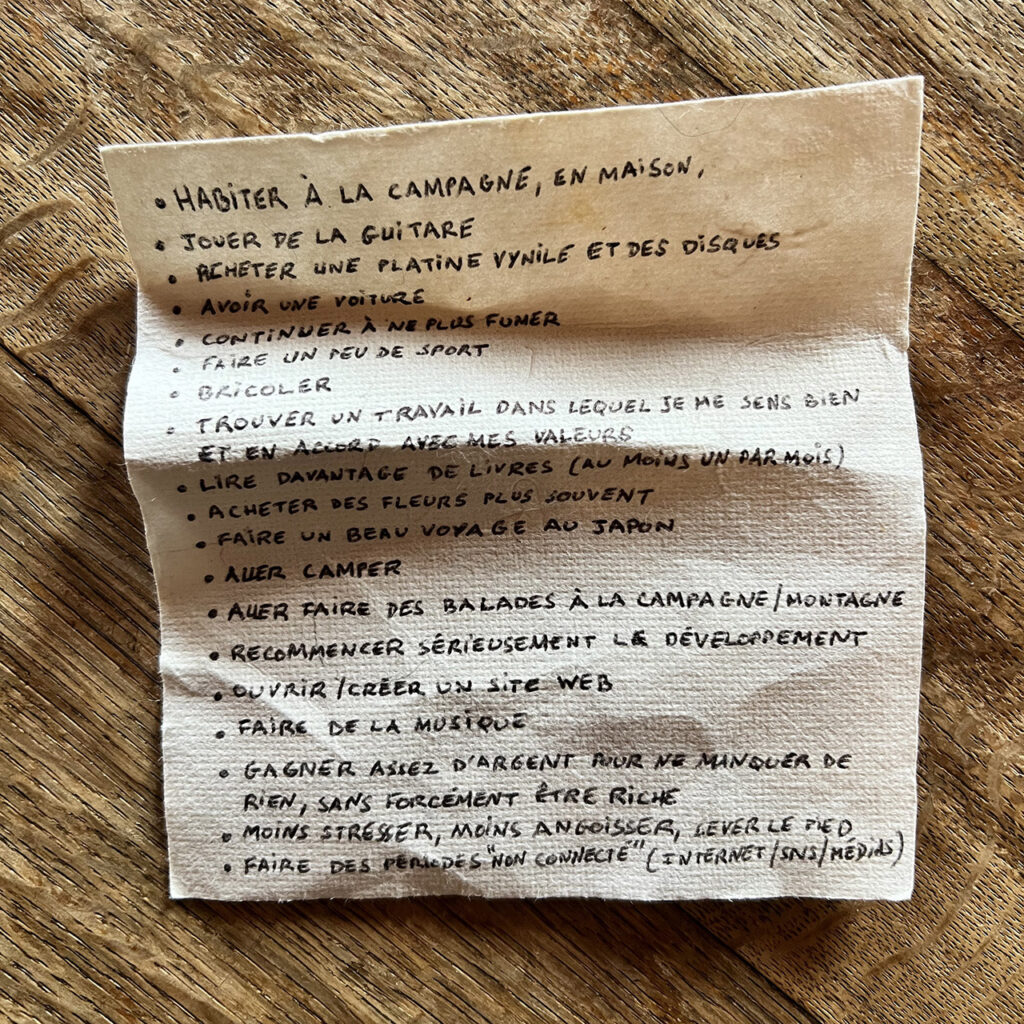 • HABITER À LA CAMPAGNE, EN MAISON,
• JOUER DE LA GUITARE
• ACHETER UNE PLATINE VYNILE ET DES DISQUES
• AVOIR UNE VOITURE
• CONTINUER À NE PLUS FUMER
• FAIRE UN PEU DE SPORT
• BRICOLER
• TROUVER UN TRAVAIL DANS LEQUEL JE ME SENS BIEN
ET EN ACCORD AVEC MES VALEURS
• LIRE DAVANTAGE DE LIVRES (AU MOINS UN PAR MOIS)
• ACHETER DES FLEURS PLUS SOUVENT
• FAIRE UN BEAU VOYAGE AU JAPON
• ALLER CAMPER
• ALLER FAIRE DES BALADES À LA CAMPAGNE/MONTAGNE
• RECOMMENCER SÉRIEUSEMENT LE DÉVELOPPEMENT
• OUVRIR/CRÉER UN SITE WEB
• FAIRE DE LA MUSIQUE
• GAGNER ASSEZ D'ARGENT POUR NE MANQUER DE
RIEN, SANS FORCÉMENT ÊTRE RICHE
• MOINS STRESSER, MOINS ANGOISSER, LEVER LE PIED
• FAIRE DES PÉRIODES "NON CONNECTÉ" (INTERNET/SNS/MÉDIAS)